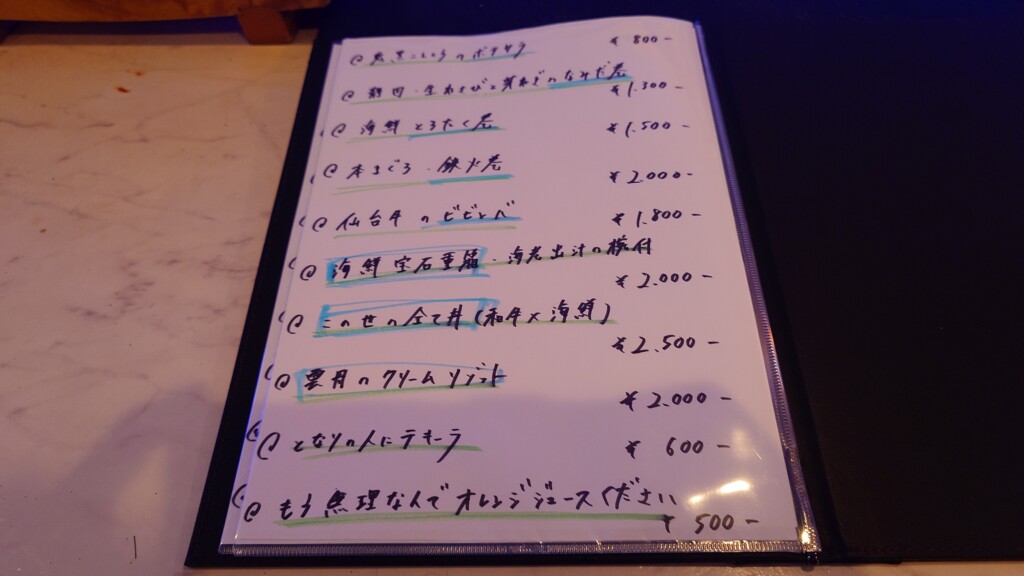 @ 黒こしょうのポテサラ ¥800-
@ 静岡・生わさびと芽ねぎのなみだ巻 ¥1.300-
@ 海鮮とろたく巻 ¥1.500-
@ 本まぐろ・鉄火巻 ¥2.000-
@ 仙台牛のビビンバ ¥1.800-
@ 海鮮宝石重箱・海老出汁の椀付
¥2.000-
@ この世の全て丼(和牛×海鮮)
¥2.500-
@ 雲丹のクリームリゾット
¥2.000-
@ となりの人にテキーラ ¥600-
@ もう無理なんでオレンジジュースください
¥500-